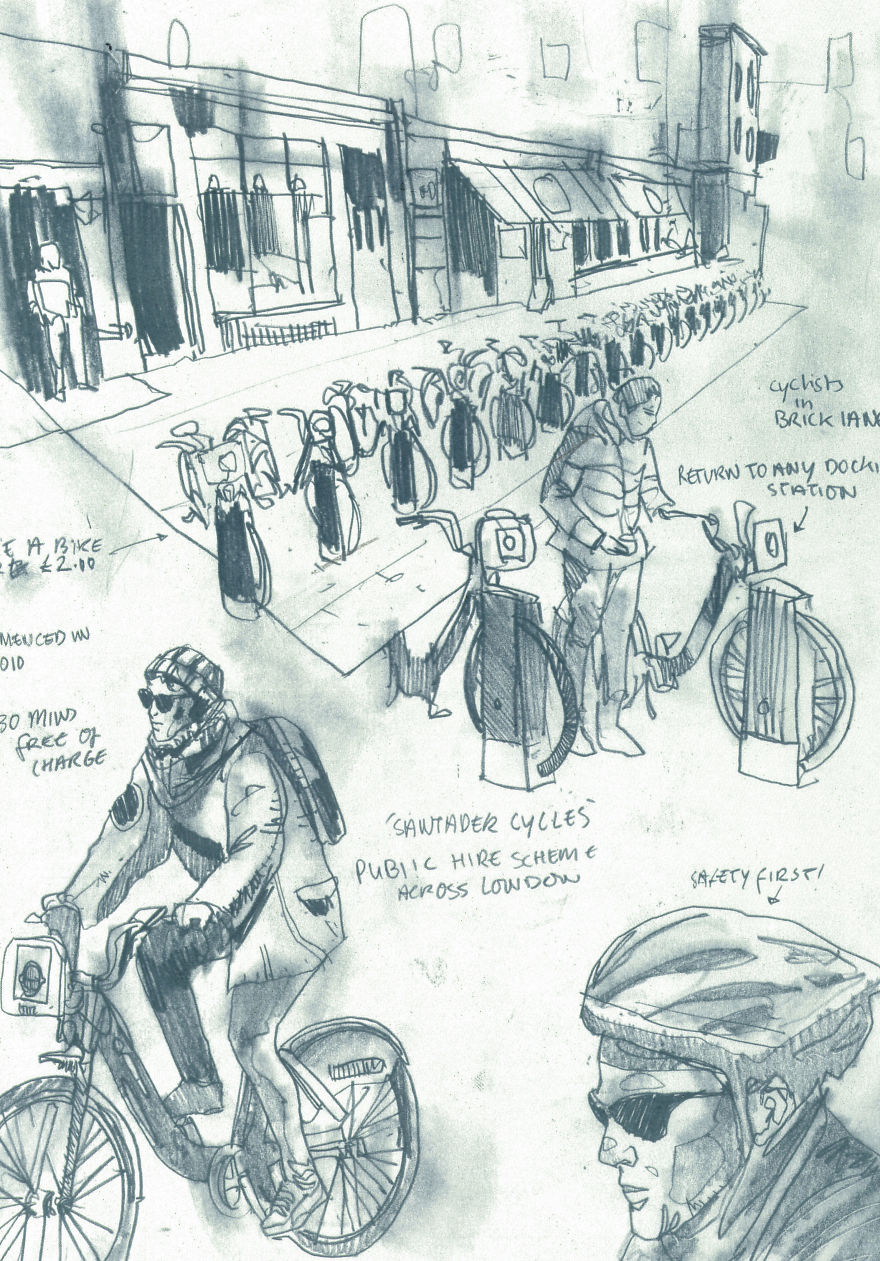 cyclists
in
BRICK LANE
RETURN TO ANY DOCKI
STATION
E A BIKE
£2.00
MENCED IN
010
30 MINS
FREE OF
CHARGE
'SANTADER CYCLES'
PUBLIC HIRE SCHEME
ACROSS LONDON
SAFETY FIRST!